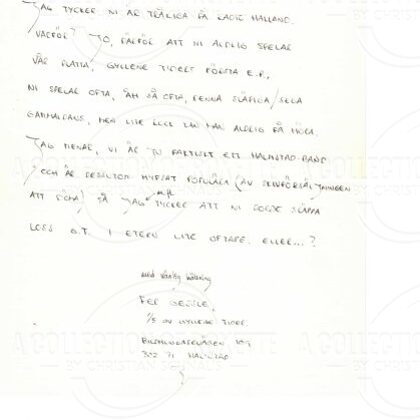 JAG TYCKER NI ÄR TRÅKIGA PÅ RADIO HALLAND.
VARFÖR? JO, DÄRFÖR ATT NI ALDRIG SPELAR
VÅR PLATTA, GYLLENE TIDERS FÖRSTA E.P.,
NI SPELAR OFTA, ÅH SÅ OFTA, DENNA SLÄPIGA/SEGA
GAMMALDANS, MEN LITE ROCK KAN MAN ALDRIG FÅ HÖRA.
JAG MENAR, VI ÄR JU FAKTISKT ETT HALMSTAD-BAND
OCH ÄR DESSUTOM HYFSAT POPULÄRA (AV
ATT DÖMA) SÅ JAG TYCKER ATT NI BORDE SLÄPPA
LOSS G.T. I ETERN LITE OFTARE, ELLER...?
med vänlig hälsning
PER GESSLE,
1/5 AV GYLLENE TIDER
302 71 HALMSTAD
A COLLECTION
BY CHRISTIAN